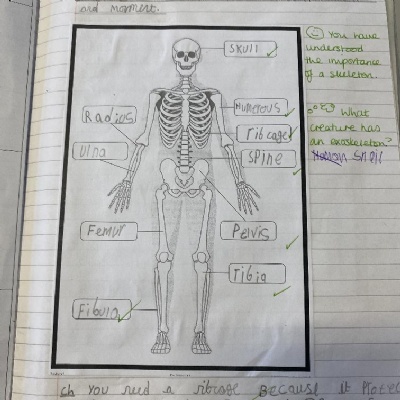 and movment.
SKUll
Radius
Humerous
Ulna
rib cage
SPine
Femur
Pelvis
Tibia
Fibula
You have
understood
the importance
of a skeleton.
What
creature has
an exoskeleton?
Snail
You need a ribcage Because it